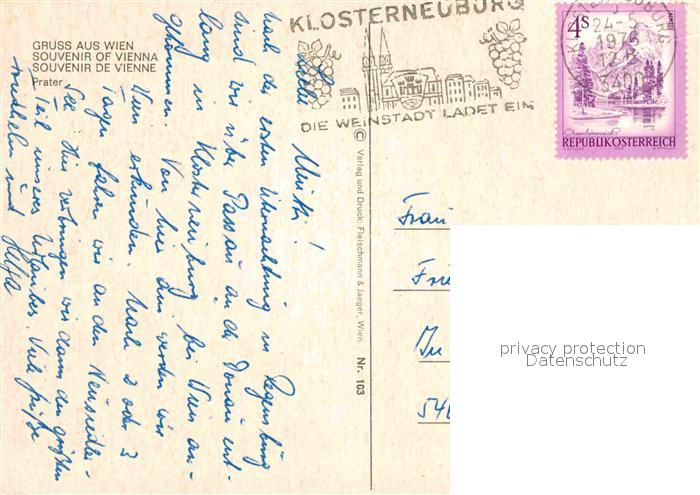 GRUSS AUS WIEN
SOUVENIR OF VIENNA
SOUVENIR DE VIENNE
Prater
KLOSTERNEUBURG
DIE WEINSTADT LADET EIN
KLOSTERNEUBURG
24-5
1976
12
3400
4S
REPUBLIK ÖSTERREICH
Liebe Mutti!
Nach der ersten Übernachtung in Regensburg
sind wir über Passau an der Donau ent-
lang in Klosterneuburg bei Wien an-
gekommen. Von hier aus werden wir
Wien erkunden. Nach 2 oder 3
Tagen fahren wir an den Neusiedler-
See. Hier verbringen wir dann den größten
Teil unseres Urlaubes. Viele Grüße
und
© Verlag und Druck: Fleischmann & Jaeger, Wien
Nr. 103
Frau
Frie
In
540
privacy protection
Datenschutz